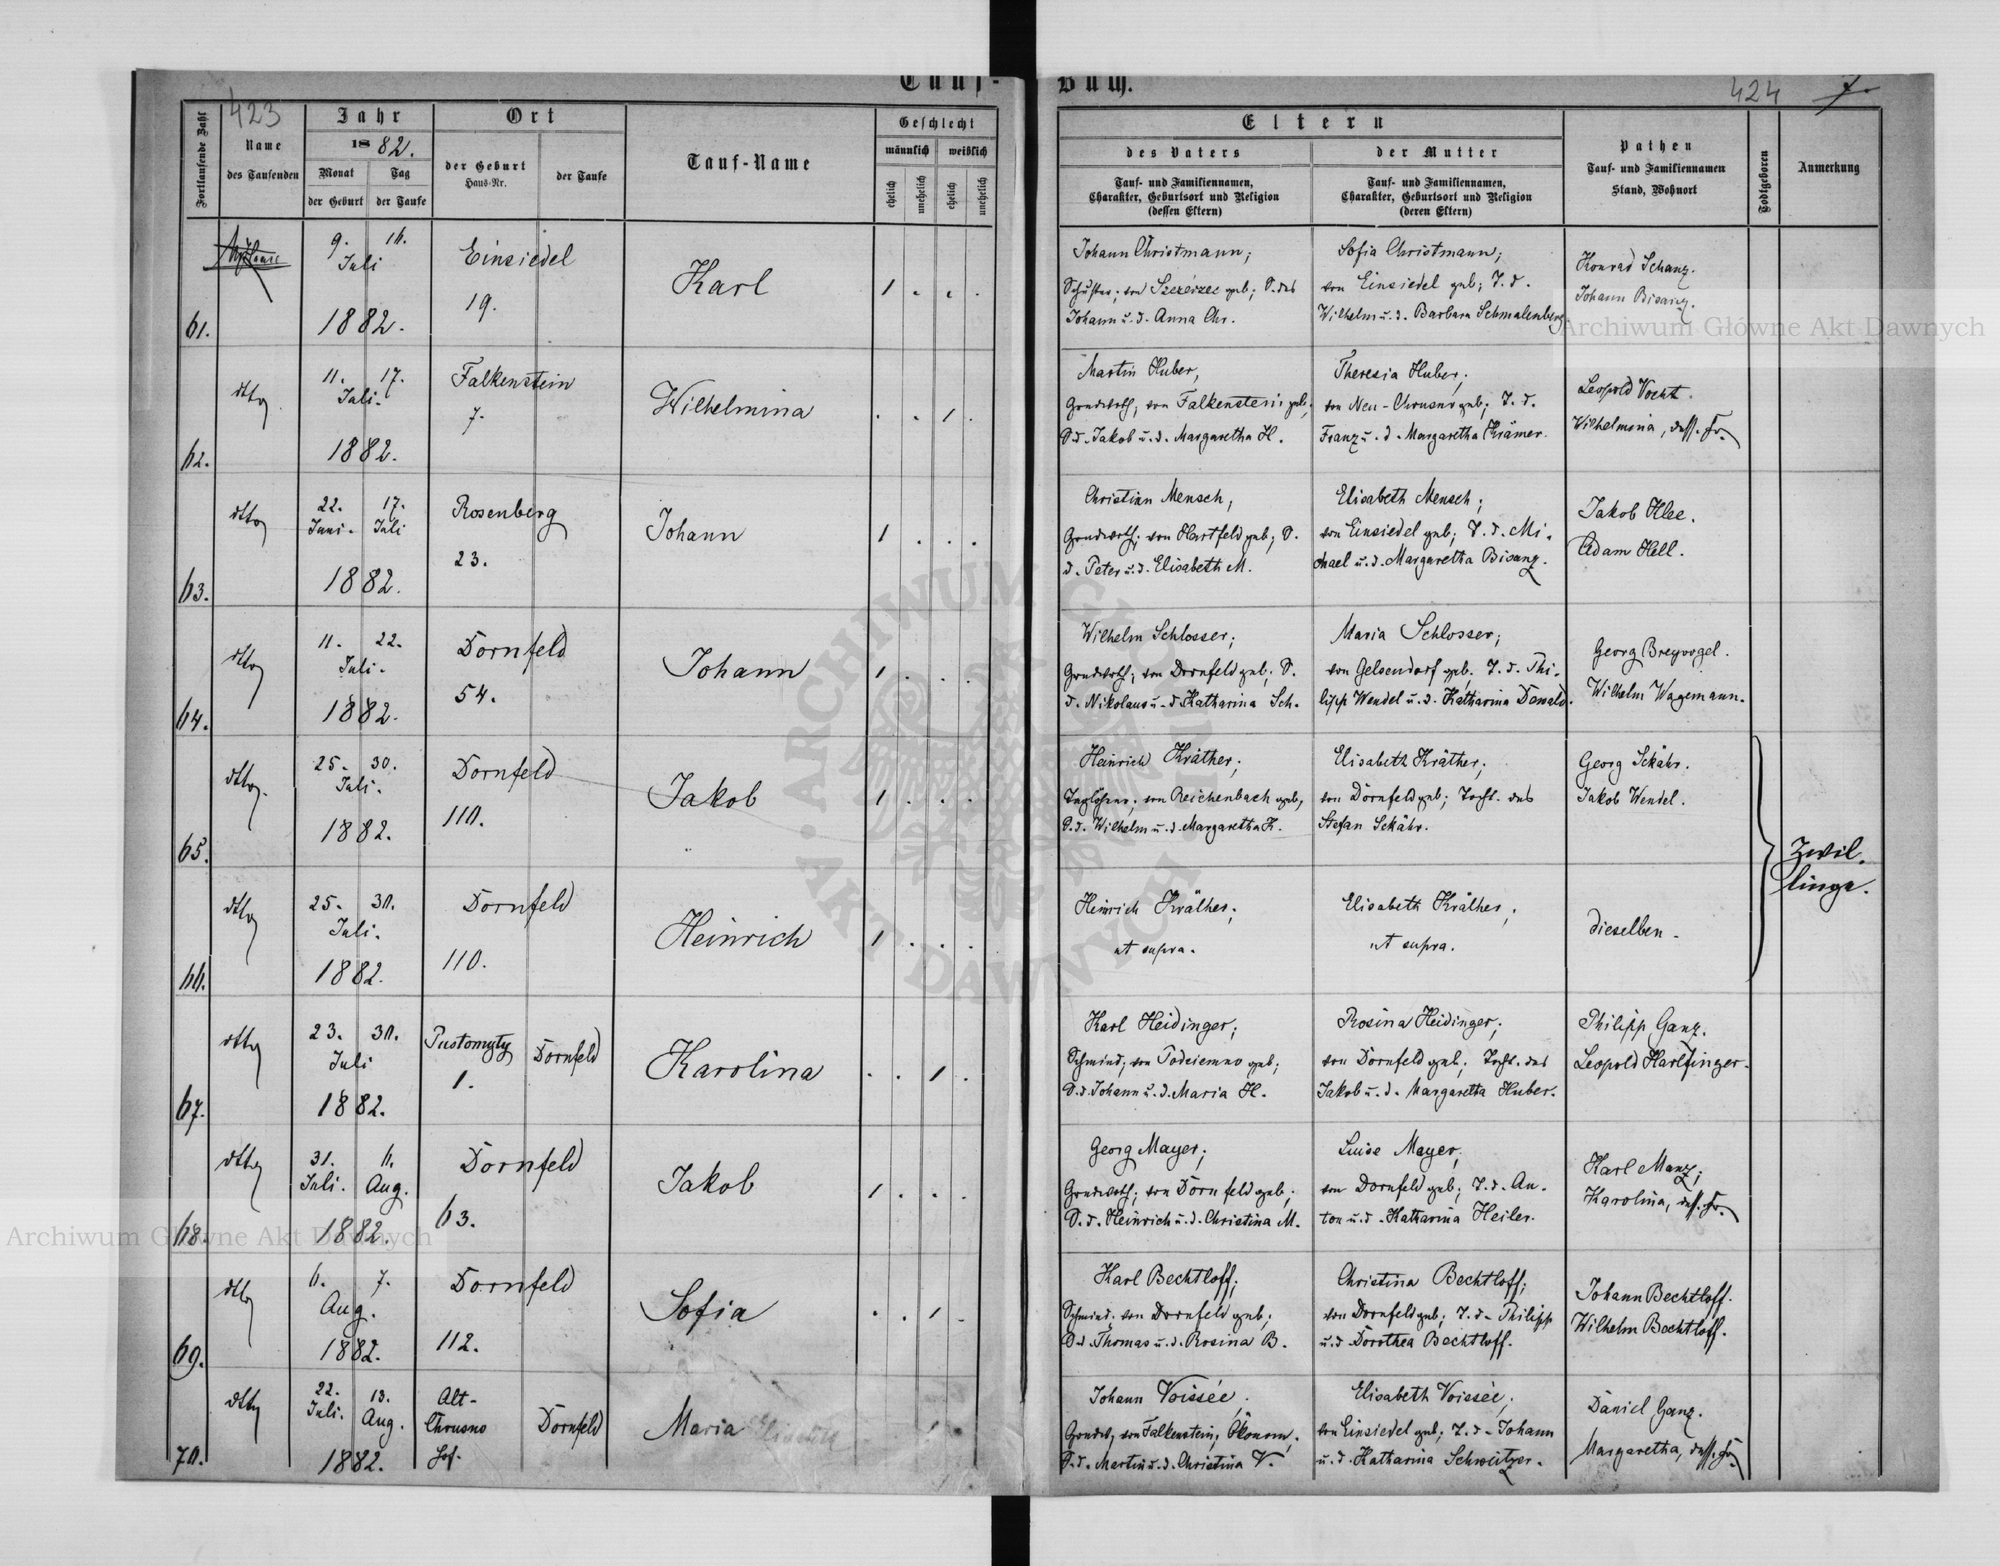 Tauf-
Buch.
423
424
7.
Fortlaufende Zahl
Name
des Taufenden
Jahr
1882.
Monat
der Geburt
Tag
der Taufe
Ort
der Geburt
Haus-Nr.
der Taufe
Tauf-Name
Geschlecht
männlich
weiblich
ehelich
unehelich
ehelich
unehelich
Eltern
des Vaters
Tauf- und Familiennamen,
Charakter, Geburtsort und Religion
(dessen Eltern)
der Mutter
Tauf- und Familiennamen,
Charakter, Geburtsort und Religion
(deren Eltern)
Pathen
Tauf- und Familiennamen
Stand, Wohnort
Todtgeboren
Anmerkung
61.
9. 16.
Juli
1882.
Einsiedel
19.
Karl
1 . . .
Johann Christmann;
Schuster; von Szczerzec geb; S. des
Johann u. d. Anna Chr.
Sofia Christmann;
von Einsiedel geb; T. d.
Wilhelm u. d. Barbara Schmalenberg
Konrad Schanz.
Johann Bisanz.
62.
dtto
11. 17.
Juli.
1882.
Falkenstein
7.
Wilhelmina
. . 1 .
Martin Huber,
Grundwirth; von Falkenstein geb;
S. d. Jakob u. d. Margaretha H.
Theresia Huber;
von Neu-Chrusno geb; T. d.
Franz u. d. Margaretha Krämer.
Leopold Vocht.
Wilhelmina, dess. Fr.
63.
dtto
22. 17.
Juni. Juli
1882.
Rosenberg
23.
Johann
1 . . .
Christian Mensch;
Grundwirth; von Hartfeld geb; S.
d. Peter u. d. Elisabeth M.
Elisabeth Mensch;
von Einsiedel geb; T. d. Mi-
chael u. d. Margaretha Bisanz.
Jakob Klee.
Adam Hell.
64.
dtto
11. 22.
Juli.
1882.
Dornfeld
54.
Johann
1 . . .
Wilhelm Schlosser;
Grundwirth; von Dornfeld geb; S.
d. Nikolaus u. d. Katharina Sch.
Maria Schlosser;
von Gelsendorf geb; T. d. Phi-
lipp Wendel u. d. Katharina
Georg Breyvogel.
Wilhelm Wagemann.
65.
dtto.
25. 30.
Juli.
1882.
Dornfeld
110.
Jakob
1 . . .
Heinrich Kräther;
Taglöhner; von Reichenbach geb;
S. d. Wilhelm u. d. Margaretha K.
Elisabeth Kräther;
von Dornfeld geb; Tocht. des
Stefan Schähr.
Georg Schähr.
Jakob Wendel.
Zwil-
linge.
66.
dtto
25. 30.
Juli.
1882.
Dornfeld
110.
Heinrich
1 . . .
Heinrich Kräther;
ut supra.
Elisabeth Kräther;
ut supra.
dieselben.
67.
dtto
23. 30.
Juli
1882.
Pustomyty
1.
Dornfeld
Karolina
. . 1 .
Karl Heidinger;
Schmied; von Podciemno geb;
S. d. Johann u. d. Maria H.
Rosina Heidinger;
von Dornfeld geb; Tocht. des
Jakob u. d. Margaretha Huber.
Philipp Ganz.
Leopold Harlfinger.
68.
dtto
31. 6.
Juli. Aug.
1882.
Dornfeld
63.
Jakob
1 . . .
Georg Mayer;
Grundwirth; von Dornfeld geb;
S. d. Heinrich u. d. Christina M.
Luise Mayer;
von Dornfeld geb; T. d. An-
ton u. d. Katharina Heiler.
Karl Manz;
Karolina, dess. Fr.
69.
dtto
6. 7.
Aug.
1882.
Dornfeld
112.
Sofia
. . 1 .
Karl Bechtloff;
Schmied; von Dornfeld geb;
S. d. Thomas u. d. Rosina B.
Christina Bechtloff;
von Dornfeld geb; T. d. Philipp
u. d. Dorothea Bechtloff.
Johann Bechtloff.
Wilhelm Bechtloff.
70.
dtto
22. 13.
Juli. Aug.
1882.
Alt-
Chrusno
Hof.
Dornfeld
Maria
Johann Voissée;
Grundw; von Falkenstein; Ökonom;
S. d. Martin u. d. Christina V.
Elisabeth Voissée;
von Einsiedel geb; T. d. Johann
u. d. Katharina Schweitzer.
Daniel Ganz.
Margaretha, dess. Fr.
Archiwum Główne Akt Dawnych
Archiwum Główne Akt Dawnych